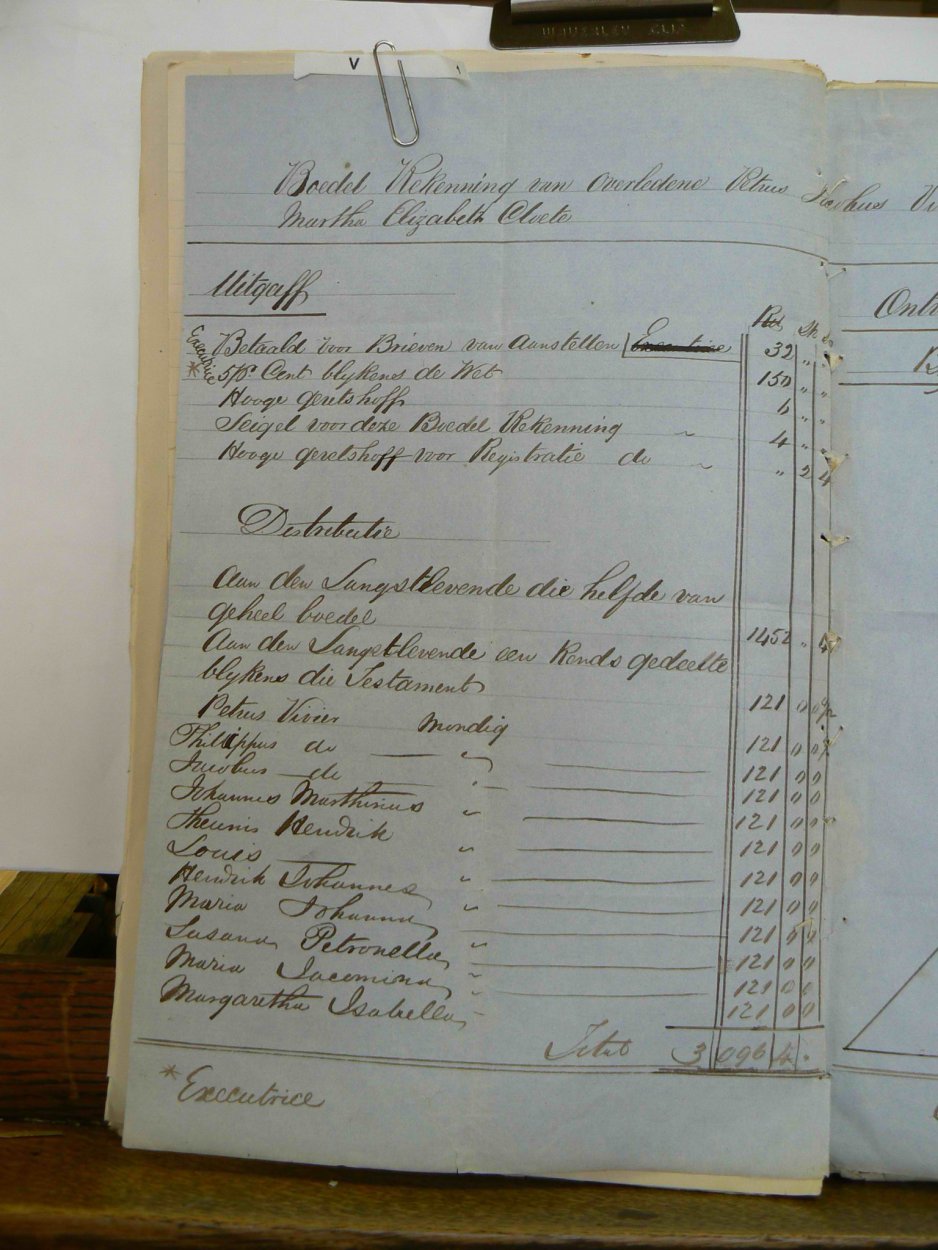 V
Boedel Rekenning van Overledene Petrus Jacobus Vi
Martha Elizabeth Cloete
Uitgaff
Ont
Rds Sk
Executrice
Betaald voor Brieven van Aanstellen Executrice 32 " "
* 5 p Cent blykens de Wet 150 " "
Hooge geretshoff 6 " "
Seigel voor deze Boedel Rekenning " 4 " "
Hooge geretshoff voor Registratie do " " 2 4
Distributie
Aan den Langstlevende die helfde van
geheel boedel 1452 " 4
Aan den Langstlevende een Kends gedeelte
blykens die Testament 121 0 0
Petrus Vivier Mondig 121 0 0
Philippus do " 121 0 0
Jacobus do " 121 0 0
Johannes Marthinus " 121 0 0
Theunis Hendrik 121 0 0
Louis " 121 0 0
Hendrik Johannes " 121 0 0
Maria Johanna " 121 0 0
Susana Petronella " 121 0 0
Maria Jacomina " 121 0 0
Margaretha Isabella " 121 0 0
Total 3 096 4 "
* Executrice